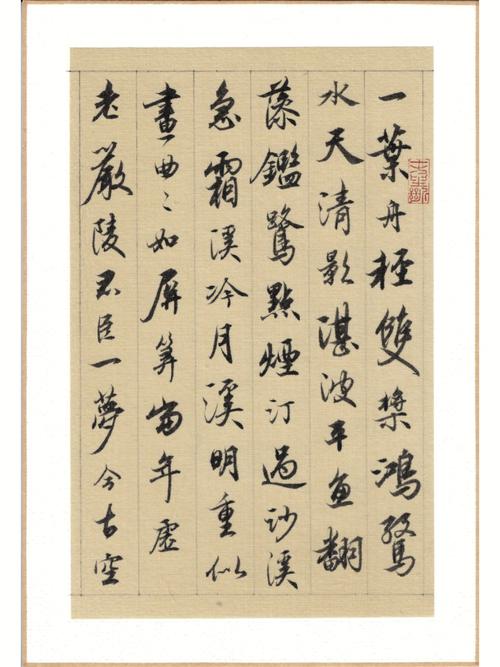 一葉舟輕雙槳鴻驚
水天清影湛波平魚翻
藻鑑鷺點煙汀過沙溪
急霜溪冷月溪明重似
畫曲〻如屏筭當年虛
老嚴陵君臣一夢今古空